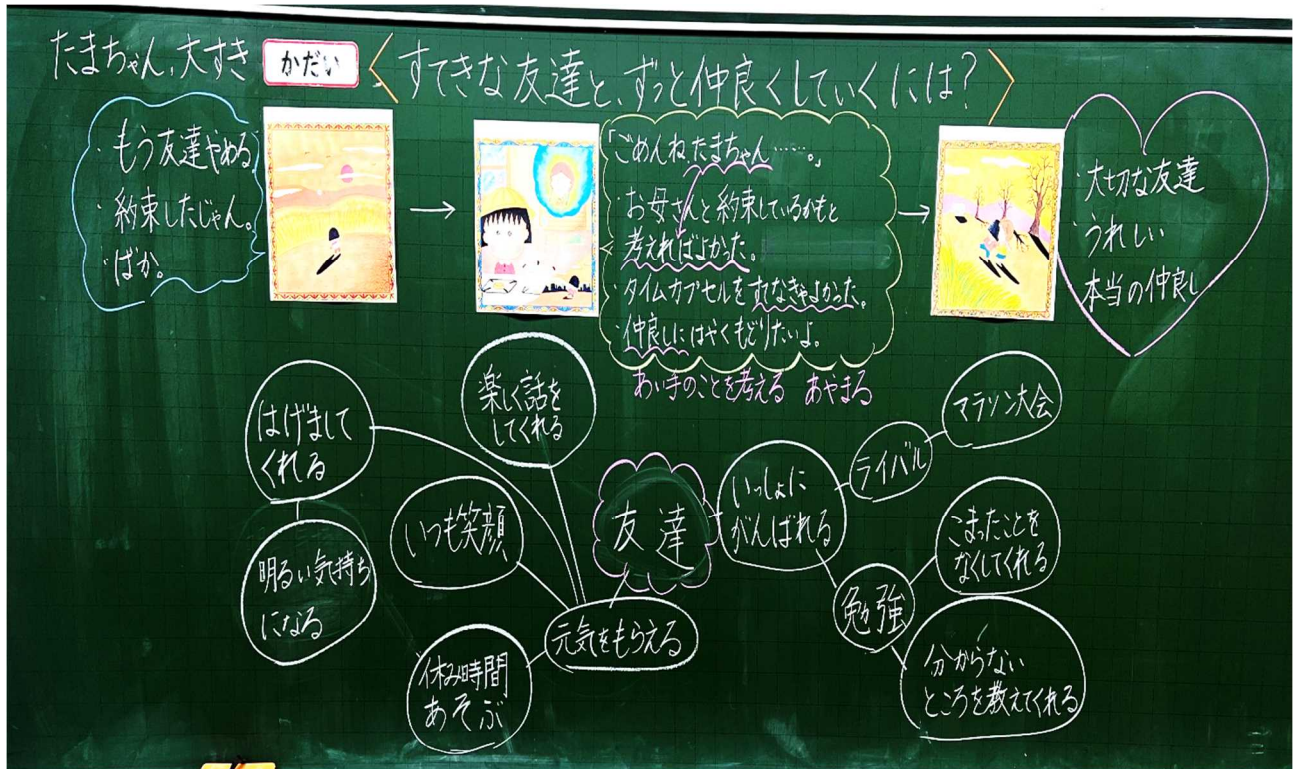 たまちゃん、大すき
かだい
すてきな友達と、ずっと仲良くしていくには?
・もう友達やめる
・約束したじゃん。
・ばか。
「ごめんね、たまちゃん……。」
・お母さんと約束しているかもと
考えればよかった。
・タイムカプセルをすてなきゃよかった。
・仲良しにはやくもどりたいよ。
あい手のことを考える あやまる
・大切な友達
・うれしい
本当の仲良し
はげまして
くれる
明るい気持ち
になる
楽しく話を
してくれる
いつも笑顔
休み時間
あそぶ
元気をもらえる
友達
いっしょに
がんばれる
ライバル
マラソン大会
勉強
こまったことを
なくしてくれる
分からない
ところを教えてくれる